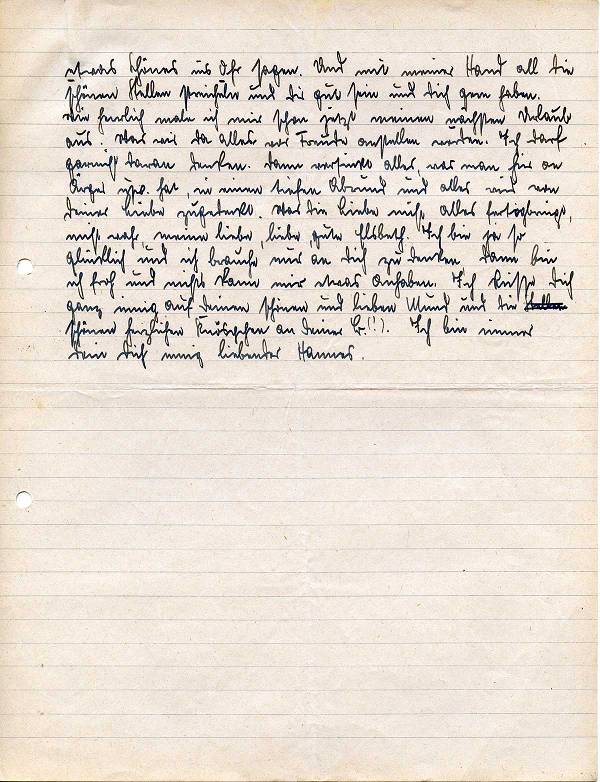 etwas Schönes ins Ohr sagen. Und mit meiner Hand all die
schönen Stellen streicheln und dir gut sein und dich gern haben.
Wie herrlich male ich mir schon jetzt meinen nächsten Urlaub
aus. Was wir da alles vor Freude anstellen werden. Ich darf
garnicht daran denken. Dann versinkt alles, was man hier an
Ärger usw. hat, in einen tiefen Abgrund und alles wird von
deiner Liebe zugedeckt. Was die Liebe nicht alles fertigbringt,
nicht wahr, meine liebe, liebe, gute Elsbeth. Ich bin ja so
glücklich und ich brauche nur an Dich zu denken. Dann bin
ich froh und nichts kann mir etwas anhaben. Ich küsse Dich
ganz innig auf deinen schönen und lieben Mund und die
schönen herzlichen Knöspchen an deiner B.(!). Ich bin immer
dein dich innig liebender Hannes.